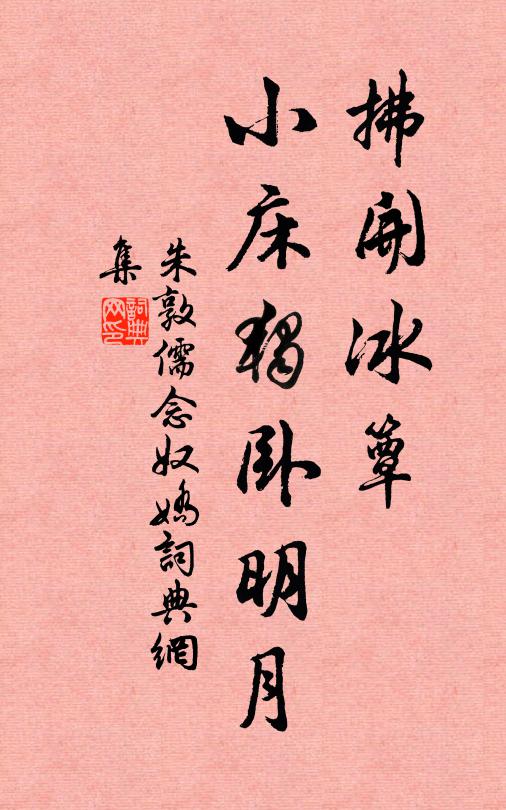 拂開冰簟
小床獨臥明月
朱敦儒念奴嬌詞典網
集
詞典
网印